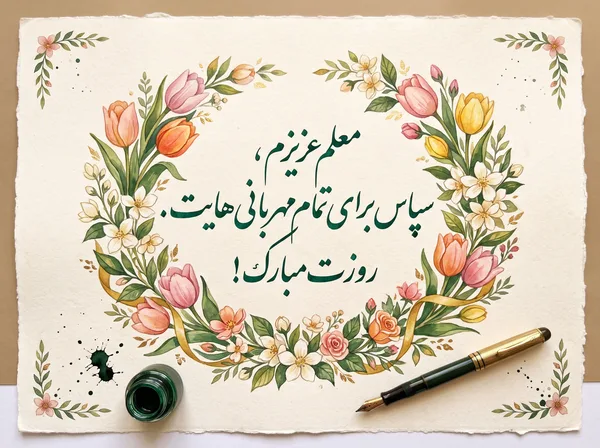 معلم عزیزم،
سپاس برای تمام مهربانی‌هایت.
روزت مبارک!